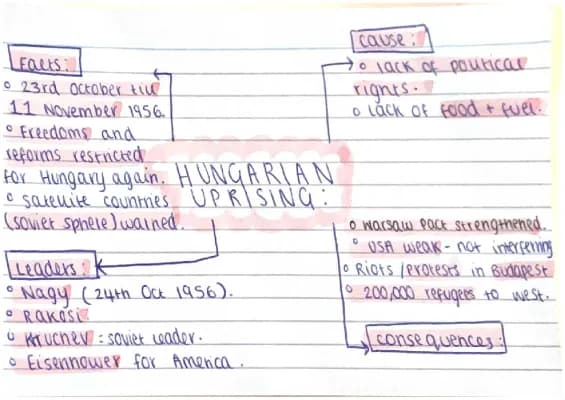 Facts:
○ 23rd October till
11 November 1956.
○ Freedoms and
reforms restricted
for Hungary again.
○ Satellite countries
(soviet sphere) warned.
Cause:
○ lack of political
rights.
○ Lack of food + fuel.
HUNGARIAN
UPRISING:
Leaders:
○ Nagy (24th Oct 1956).
○ Rakosi
○ Kruchev = soviet leader.
○ Eisenhower for America.
○ Warsaw Pact strengthened.
○ USA weak - not interfering
○ Riots / protests in Budapest
○ 200,000 refugees to west.
Consequences: